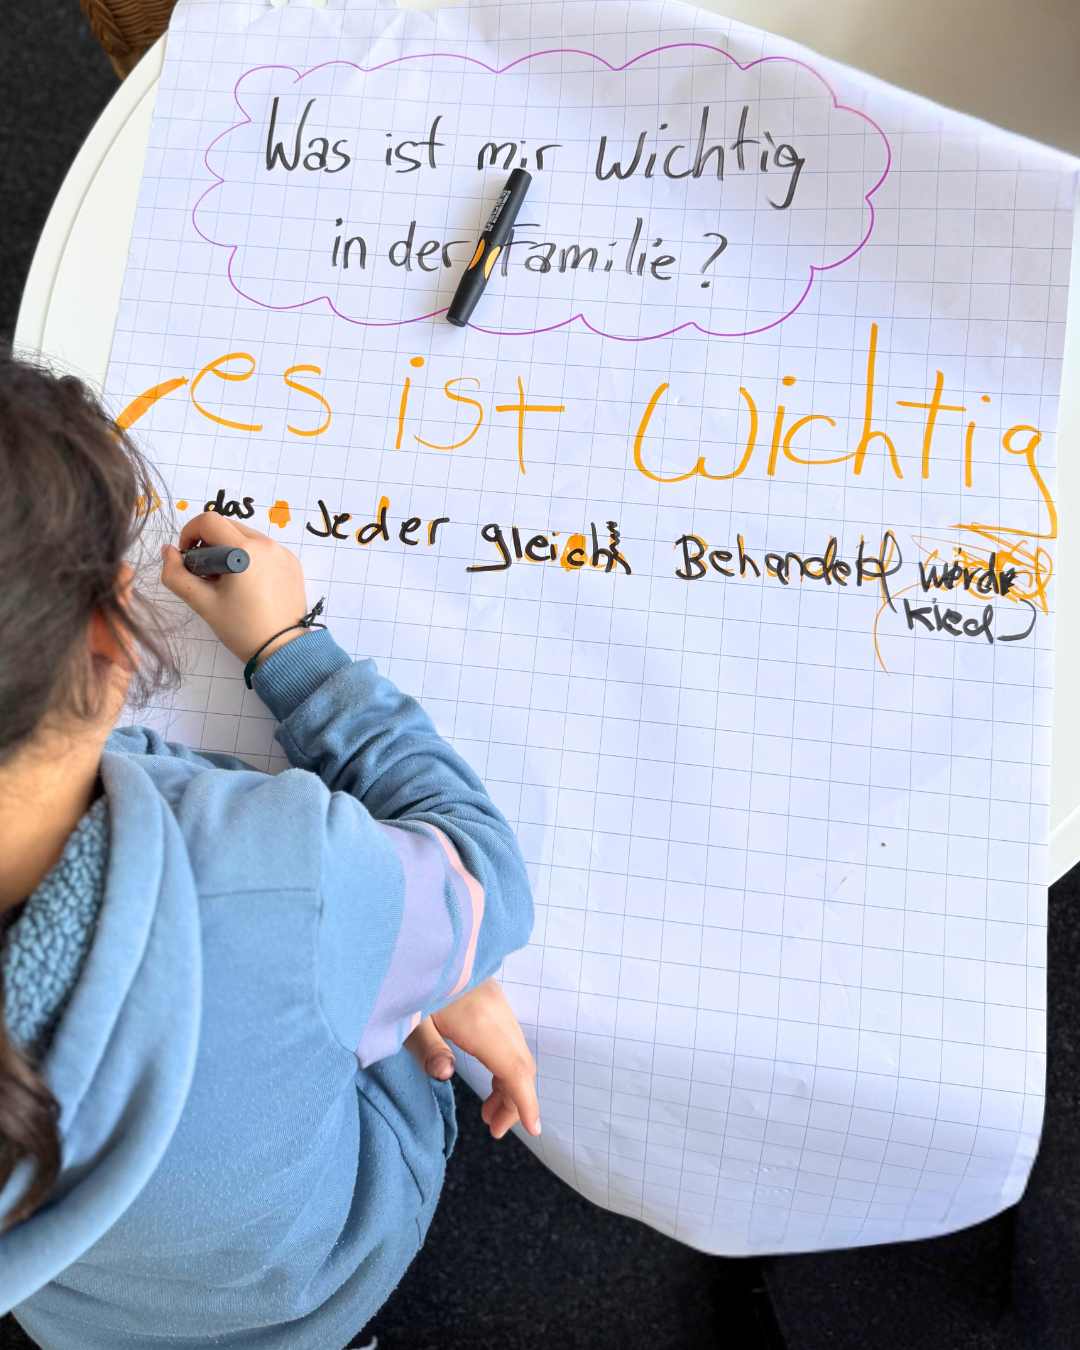 Was ist mir wichtig
in der Familie?
es ist wichtig
das Jeder gleich Behandelt